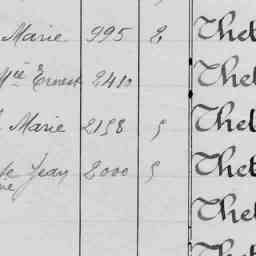 Marie 995 E Thet
Mce Ernest 2410 Thet
Marie 2158 5 Thel
Jean 2000 5 Thet
Thet
Thet